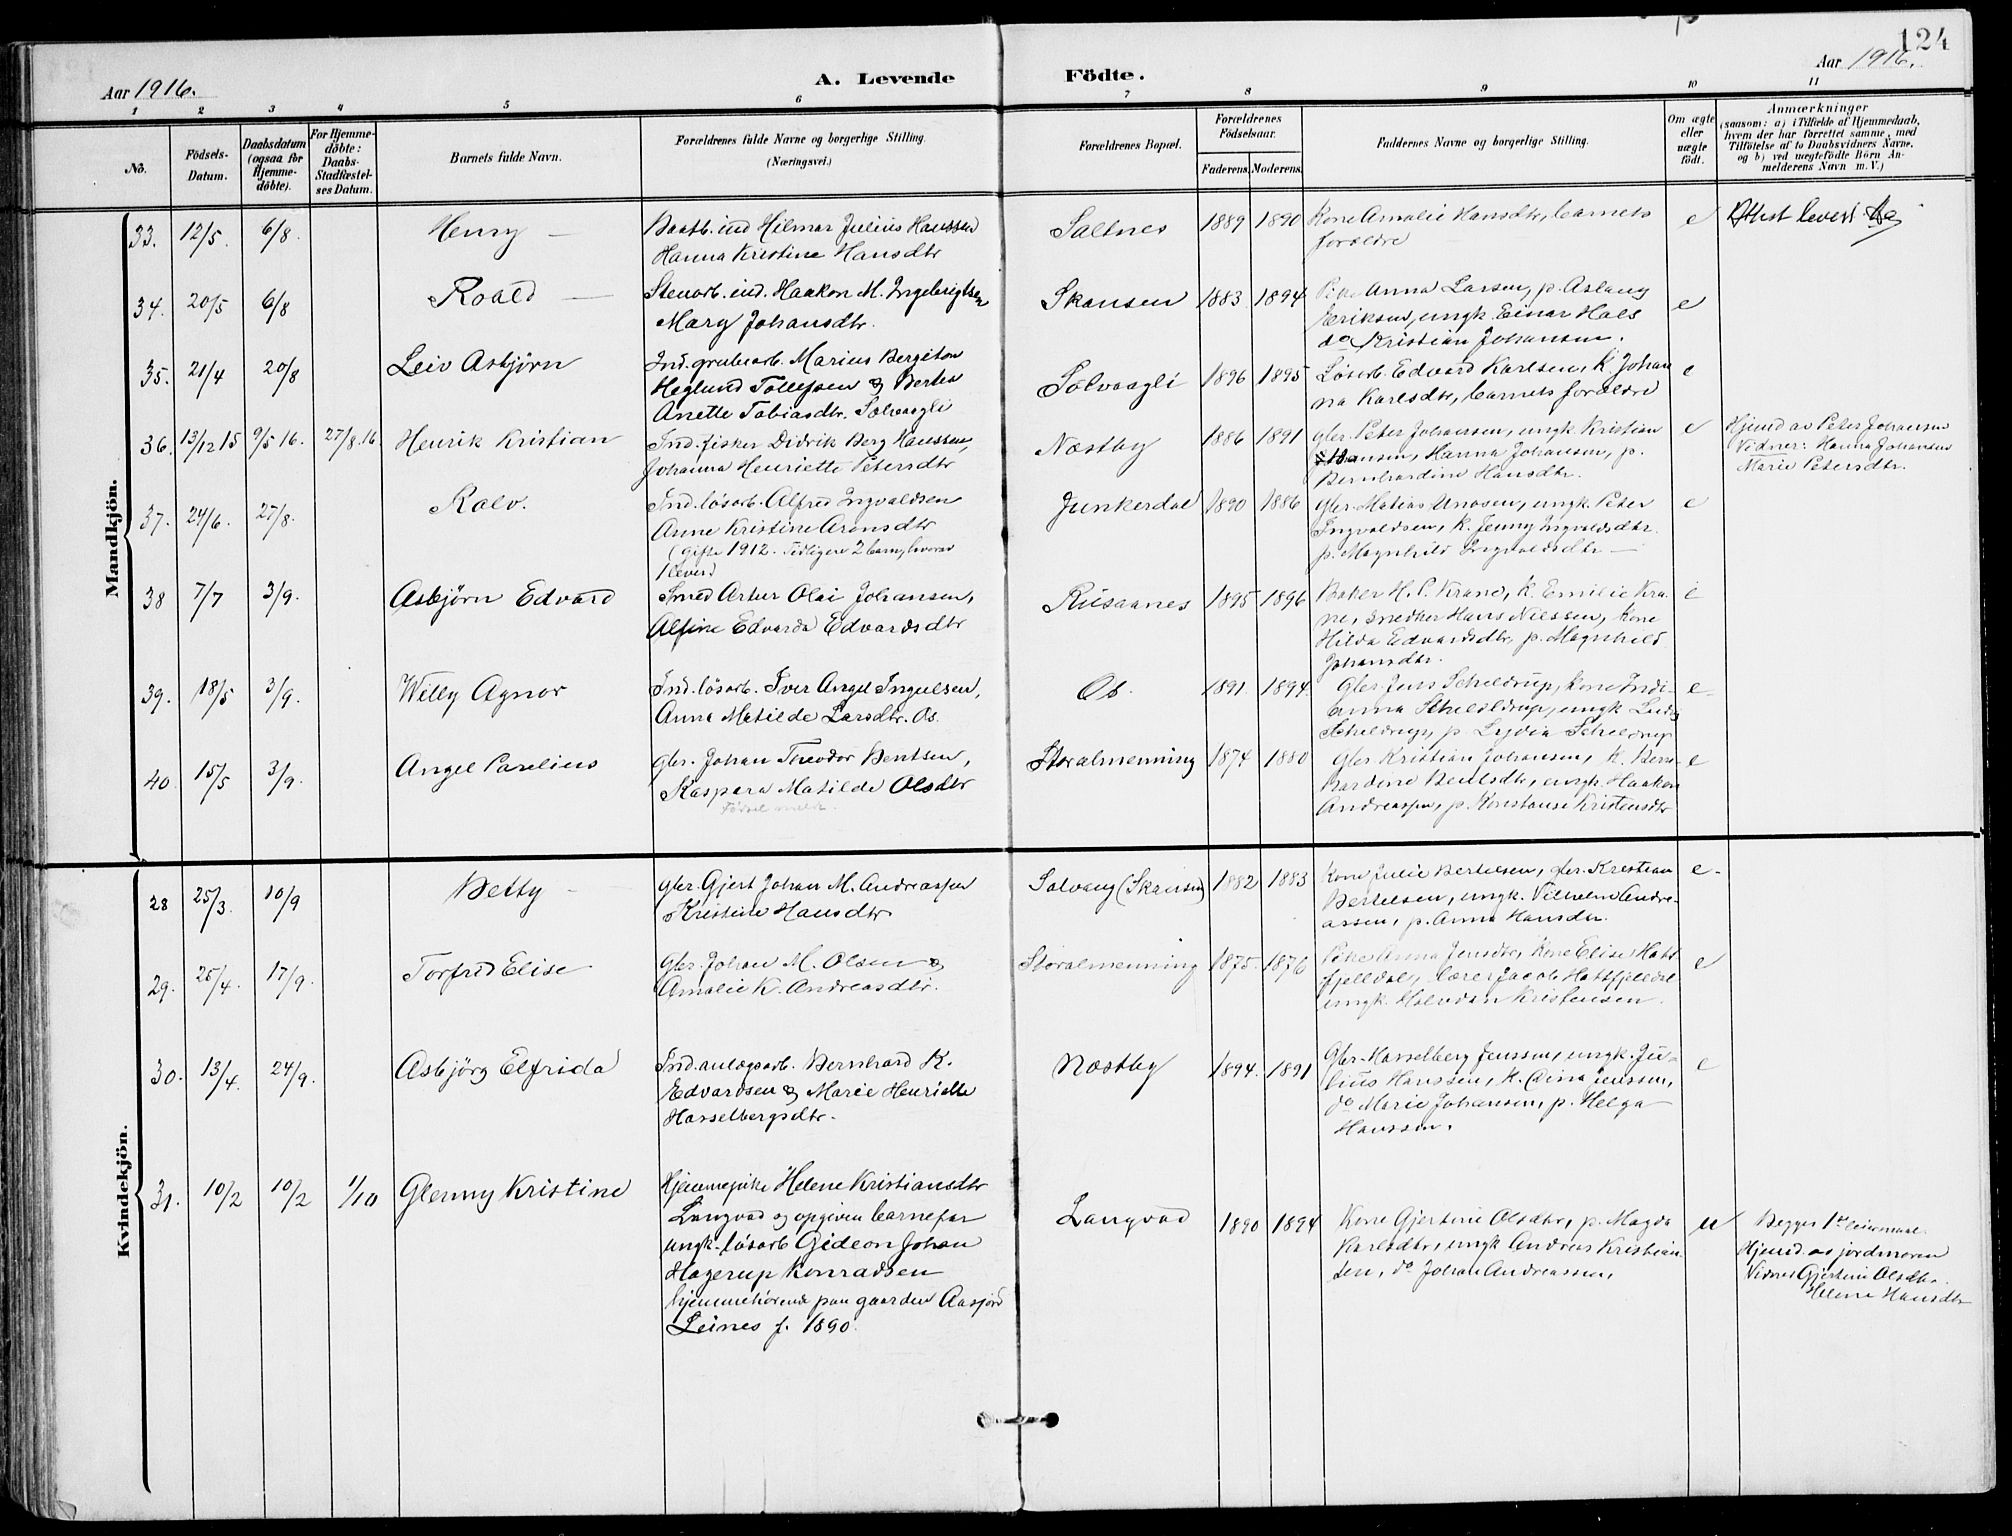 124
Aar 1916.
A. Levende
Födte.
Aar 1916.
1 2 3 4 5 6 7 8 9 10 11
No.
Födsels-Datum.
Daabsdatum (ogsaa for Hjemme-döbte).
For Hjemme-döbte: Daabs-Stadfæstel-ses Datum.
Barnets fulde Navn.
Forældrenes fulde Navne og borgerlige Stilling.
(Næringsvei.)
Forældrenes Bopæl.
Forældrenes Födselsaar.
Faderens. Moderens.
Faddernes Navne og borgerlige Stilling.
Om ægte eller uægte födt.
Anmærkninger
(saasom: a) i Tilfælde af Hjemmedaab,
hvem der har forrettet samme, med
Tilföielse af to Daabsvidners Navne,
og b) ved uægtefödte Börn An-
melderens Navn m. V.)
Mandkjön.
33. 12/5. 6/8. Henry — Baatb. ind Hilmar Julius Hanssen
Hanna Kristine Hansdtr
Saltnes 1889 1890 Kone Amalie Hansdtr, barnets
forældre
e Attest levert
34. 20/5 6/8 Roald — Stenarb. ind. Haakon M. Ingebrigtsen
Mary Johansdtr.
Skansen 1883 1894 Pike Anna Larsen, p. Aslaug
Eriksen, ungk Einar Hals
do Kristian Johansen.
e
35. 21/4 20/8 Leiv Asbjörn Ind. grubearb. Marius Bergiton
Heglund Tollefsen & Berta
Anette Tobiasdtr. Solvaagli
Solvaagli 1896 1895 Løsarb. Edvard Karlsen, K. Johan
na Karlsdtr, barnets forældre
e
36. 13/12 15 9/5 16. 27/8.16 Henrik Kristian Ind. fisker Didrik Berg Hanssen,
Johanna Henriette Petersdtr
Næstby 1886 1891 gbr. Peter Johanssen, ungk. Kristian
Johansen, Hanna Johansen, p.
Bernhardine Hansdtr.
e Hjemd av Peter Johansen
Vidner: Hanna Johansen
Marie Petersdtr.
37. 24/6. 27/8. Ralv. Ind. løsarb. Alfred Ingvaldsen
Anne Kristine Aronsdtr
(Gifte 1912. Tidligere 2 barn, hvorav
1 lever)
Junkerdal 1890 1886 Gbr. Matias Aronsen, ungk. Peter
Ingvaldsen, k. Jenny Ingvaldsdtr.
p. Magnhild Ingvaldsdtr —
e
38 7/7 3/9. Asbjörn Edvard Smed Artur Olai Johansen,
Alfine Edvarda Edvardsdtr
Rusaanes 1895 1896 Baker H. P. Krane, k. Emilie Kra-
ne, snedker Hans Nilssen, Kone
Hilda Edvardsdtr, p. Magnhild
Johansdtr.
e
39. 18/5 3/9. Willy Agnor Ind. løsarb. Iver Angel Ingulsen,
Anna Matilde Larsdtr. Os.
Os. 1891. 1894. Gbr. Jens Scheldrup, Kone Indi-
anna Scheldrup, ungk Ludv
Scheldrup, p. Lydia Scheldrup
e.
40 15/5 3/9. Angel Parelius gbr. Johan Theodor Bentsen,
Kaspara Matilde Olsdtr
Födsel meldt
Storalmenning 1874 1880 Gbr. Kristian Johansen, K. Bern-
hardine Bentsdtr, ungk. Haakon
Andreassen, p. Konstanse Kristensdtr
e
Kvindekjön.
28 25/3. 10/9 Betty — gbr. Gjert Johan M. Andreassen
o Kristine Hansdtr
Solvang (Skansen) 1882 1883 Kone Julie Bertelsen, gbr. Kristian
Bertelsen, ungk. Vilhelm Andre-
assen, p. Anna Hansdtr.
e.
29. 25/4. 17/9. Torfrid Elise gbr. Johan M. Olsen &
Amalie K. Andreasdtr.
Storalmenning 1875. 1876 Pike Anna Jensdtr, Kone Elise Hatt
fjelldal, lærer Jacob Hattfjelldal
ungk. Halvdan Kristensen.
e
30. 13/4. 24/9. Asbjörg Elfrida Ind. anlægsarb. Bernhard K.
Edvardsen & Marie Henriette
Hasselbergsdtr.
Næstby 1894. 1891 Gbr. Hasselberg Jenssen, ungk. Ju-
lius Hanssen, K. Caina Jenssen,
do Marie Johansen, p. Helga
Hanssen.
e
31. 10/2 10/2 1/10 Glenny Kristine Hjemmepike Helene Kristiansdtr
Langvad og opgiven barnefar
ungk. løsarb Gideon Johan
Hagerup Konradsen
hjemmehörende paa gaarden Aasjord
Leines f. 1890.
Langvad 1890 1894 Kone Gjertine Olsdtr, p. Magda
Karlsdtr, ungk Andreas Kristian-
sen, do Johan Andreassen,
u Begges 1ste leiermaal.
Hjemd. av jordmoren
Vidner Gjertine Olsdtr.
Helene Hansdtr